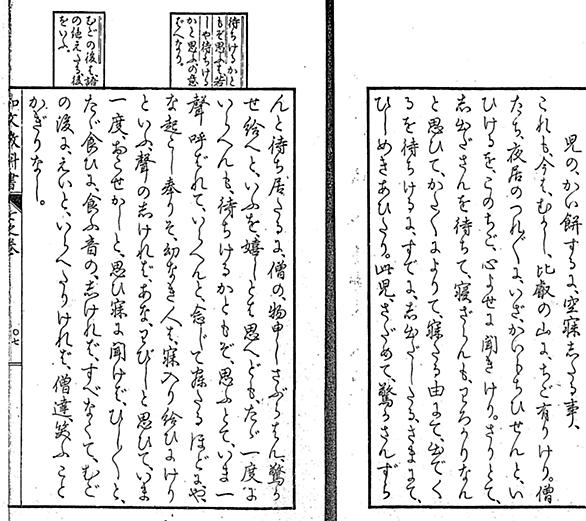 児の、かい餅するに、空寝したる事、
これも、今は、むかし、比叡の山に、ちご有りけり。僧
たち、夜居のつれ〴〵に、いざかいもちひせんと、い
ひけるを、このちご、心よせに聞きけり。さりとて、
し出ださんを待ちて、寝ざらんも、わろかりなん
と思ひて、かたへによりて、寝たる由にて、出でく
るを待ちけるに、すでに、し出だしたるさまにて、
ひしめきあひたり。此児、さだめて、驚かさんずら
待ちけるかと
もぞ思ふは若
しや待ちける
かと思ふの意
なり
んと待ち居たるに、僧の、物申しさぶらはん、驚か
せ給へと、いふを、嬉しとは思へども、たゞ一度に
いらへんも、待ちけるかともぞ、思ふとて、いま一
聲呼ばれて、いらへんと、念じて寐たるほどに、や、
な起こし奉りそ、幼なき人は、寐入り給ひにけり
といふ、聲のしければ、あな、わびしと思ひて、いま
一度、おこせかしと、思ひ寐に聞けば、ひし〳〵と、
むごの後は
の絶えたる後
をいふ
たゞ食ひに、食ふ音の、しければ、すべなくて、むご
の後に、えいと、いらへたりければ、僧達、笑ふこと
かぎりなし。
和文教科書 之巻 〇七